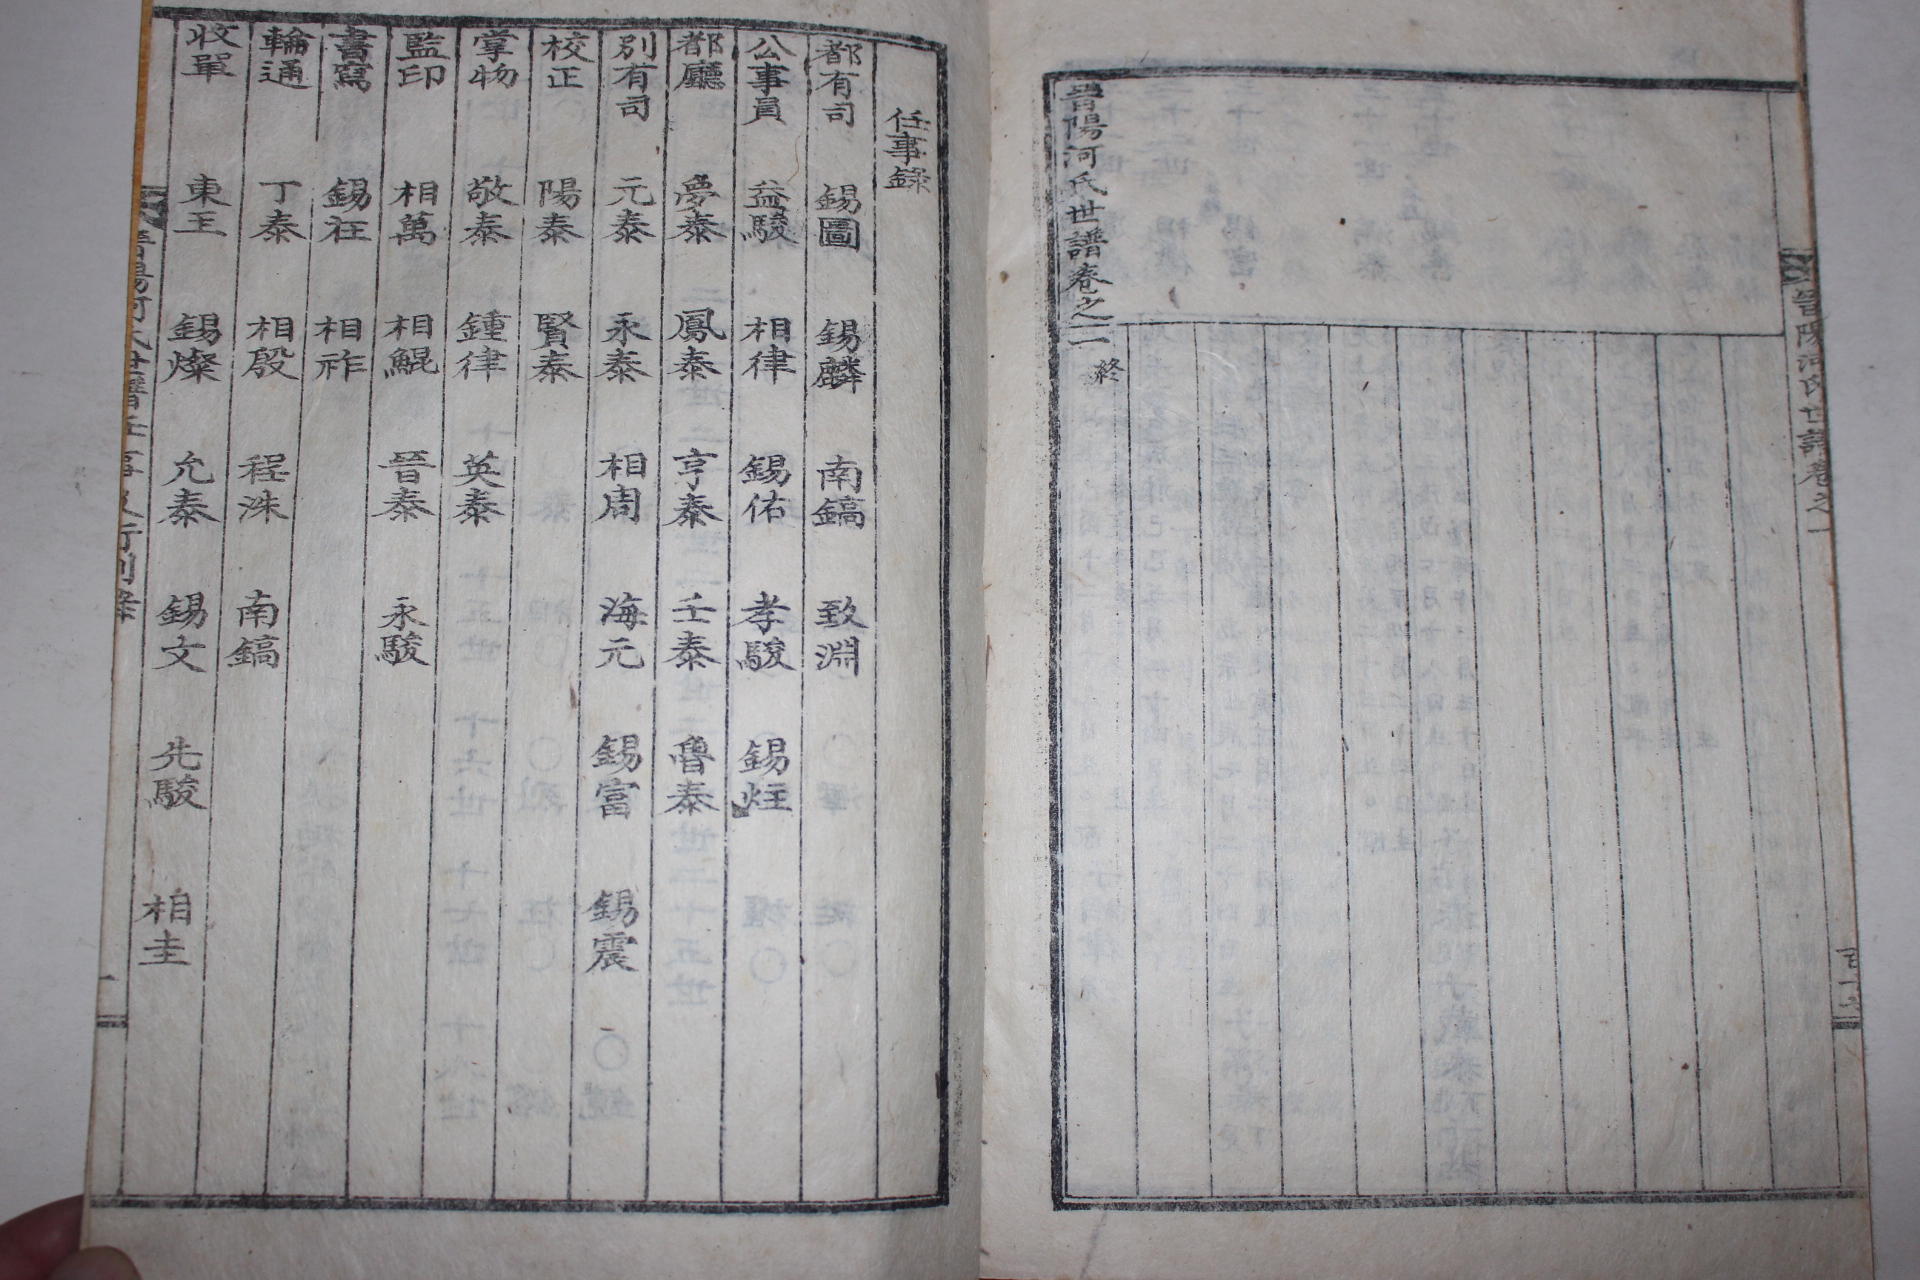 晋陽河氏世譜卷之二 終
任事錄
都有司 錫圖 錫麟 南鎬 致淵
公事員 益駿 相律 錫佑 孝駿 錫炷
都廳 夢泰 鳳泰 亨泰 壬泰 魯泰
別有司 元泰 永泰 相周 海元 錫富 錫震
校正 陽泰 賢泰
掌物 敬泰 鍾律 英泰
監印 相萬 相鯤 晉泰 永駿
書寫 錫祍 相祚
輪通 丁泰 相殷 程洙 南鎬
收單 東王 錫燦 允泰 錫文 先駿 相圭